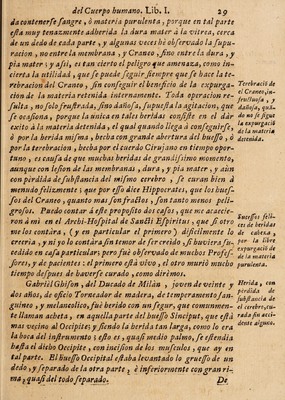 del Cuerpo humano. Lib. I. 29
da contenerse sangre, ò materia purulenta, porque en tal parte
està muy tenazmente adherida la dura mater à la vitrea, cerca
de un dedo de cada parte, y algunas veces hè observado la supu-
racion, no entre la membrana, y Craneo, sino entre la dura, y
pia mater; y assi, es tan cierto el peligro que amenaza, como in-
cierta la utilidad, que se puede seguir siempre que se hace la te-
rebracion del Craneo, sin conseguir el beneficio de la expurga-
cion de la materia retenida interiormente. Toda operacion re-
sulta, no solo frustrada, sino dañosa, supuesta la agitacion, que
se ocasiona, porque la unica en tales heridas consiste en el dàr
exito à la materia detenida, el qual quando llega à conseguirse,
ò por la herida misma, hecha con grande abertura del huesso, ò
por la terebracion, hecha por el cuerdo Cirujano en tiempo opor-
tuno, es causa de que muchas heridas de grandissimo momento,
aunque con lesion de las membranas, dura, y pia mater, y aun
con pèrdida de substancia del mismo cerebro, se curan bien à
menudo felizmente; que por esso dice Hippocrates, que los hues-
sos del Craneo, quanto mas son fractos, son tanto menos peli-
grosos. Puedo contar à este proposito dos casos, que me acaecie-
ron à mi en el Archi-Hospital de Sancti Espiritus, que si otro
me los contàra, (y en particular el primero) dificilmente lo
creerìa, y ni yo lo contàra sin temor de ser creìdo, si huviera su-
cedido en casa particular; pero fuè observado de muchos Profes-
sores, y de pacientes: el primero està vivo, el otro muriò mucho
tiempo despues de haverse curado, como dirèmos.
Gabriel Ghison, del Ducado de Milàn, joven de veinte y
dos años, de oficio Torneador de madera, de temperamento san-
guineo, y melancolico, fuè herido con un segur, que comunmen-
te llaman acheta, en aquella parte del huesso Sinciput, que està
mas vecino al Occipite; y siendo la herida tan larga, como lo era
la boca del instrumento; esto es, quasi medio palmo, se estendia
hasta el dicho Occipite, con incision de los musculos, que ay en
tal parte. El huesso Occipital estaba levantado lo gruesso de un
dedo, y separado de la otra parte, è inferiormente con gran ri-
ma, quasi del todo separado.
De
Terebraciò
el Craneo, in-
fructuosa, y
dañosa, quã-
do no se sigue
la expurgaciò
de la materia
detenida.
Sucessos feli-
ces de heridas
de cabeza,
por la libre
expurgaciò de
de la materia
purulenta.
Herida, con
pèrdida de
substancia de
el cerebro, cu-
rada sin acci-
dente alguno.